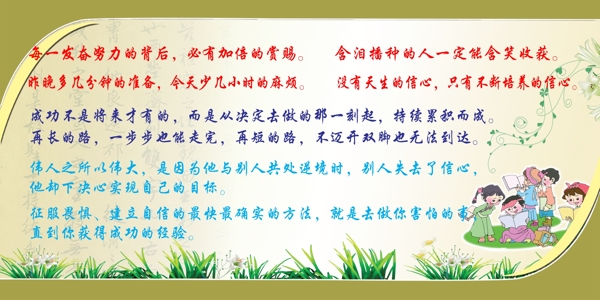 每一发奋努力的背后，必有加倍的赏赐。 含泪播种的人一定能含笑收获。
昨晚多几分钟的准备，今天少几小时的麻烦。 没有天生的信心，只有不断培养的信心。
成功不是将来才有的，而是从决定去做的那一刻起，持续累积而成。
再长的路，一步步也能走完，再短的路，不迈开双脚也无法到达。
伟人之所以伟大，是因为他与别人共处逆境时，别人失去了信心，
他却下决心实现自己的目标。
征服畏惧、建立自信的最快最确实的方法，就是去做你害怕的事，
直到你获得成功的经验。